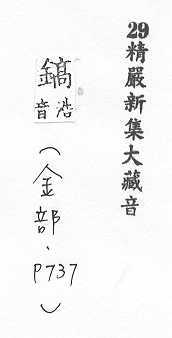 29精嚴新集大藏音
鎬
浩音
（金部．P737）